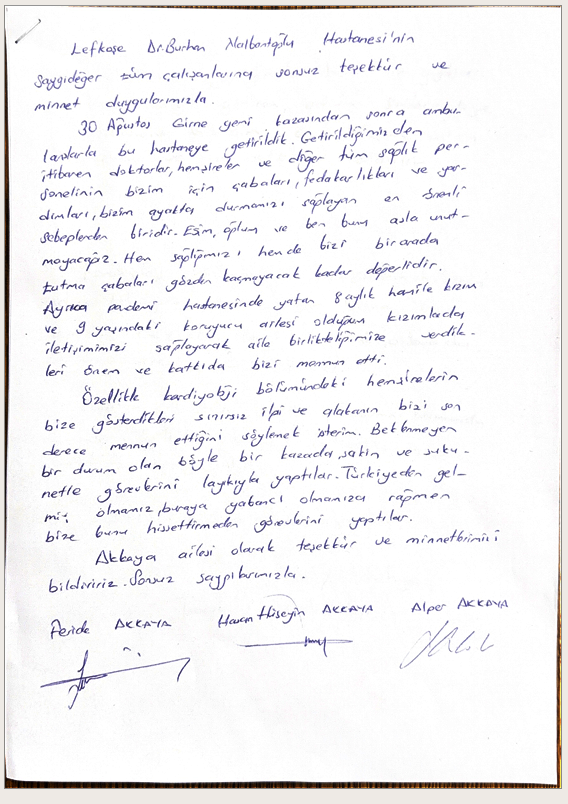 Lefkoşe Dr. Burhan Nalbantoğlu Hastanesi'nin
Saygıdeğer tüm çalışanlarına sonsuz teşekkür ve
minnet duygularımızla.
30 Ağustos Girne gemi kazasından sonra ambu-
lanslarla bu hastaneye getirildik. Getirildiğimizden
itibaren doktorlar, hemşireler ve diğer tüm sağlık per-
sonelinin bizim için çabaları, fedakarlıkları ve yar-
dımları, bizim ayakta durmamızı sağlayan en önemli
sebeplerden biridir. Eşim, oğlum ve ben bunu asla unut-
mayacağız. Hem sağlığımızı hemde bizi birarada
tutma çabaları gözden kaçmayacak kadar değerlidir.
Ayrıca pandemi hastanesinde yatan 8 aylık hamile kızım
ve 9 yaşındaki koruyucu ailesi olduğum kızımlada
iletişimimizi sağlayarak aile birlikteliğimize verdik-
leri önem ve kattıda bizi memnun etti.
Özellikle kardiyoloji bölümündeki hemşirelerin
bize gösterdikleri sınırsız ilgi ve alakanın bizi son
derece memnun ettiğini söylemek isterim. Beklenmeyen
bir durum olan böyle bir kazada, sakin ve suku-
netle görevlerini layıkıyla yaptılar. Türkiyeden gel-
miş olmamız, buraya yabancı olmamıza rağmen
bize bunu hissettirmeden görevlerini yaptılar.
Akkaya ailesi olarak teşekkür ve minnetlerimizi
bildiririz. Sonsuz saygılarımızla.
Feride AKKAYA Hasan Hüseyin AKKAYA Alper AKKAYA